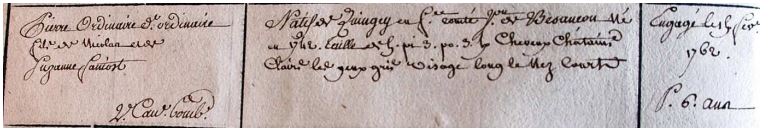 Pierre Ordinaire d.t ordinaire
fils de Nicolas et de
Suzanne
2.e Can.r bomb.r
Natif de Quingey en f.che comté J.on de Besancon Né
en 1742. taille de 5. pi. 3. po. 3. Cheveux Châtains
Clairs les yeux gris Visage long le Nez Courte
Engagé le
1762.
P. 6. Ans